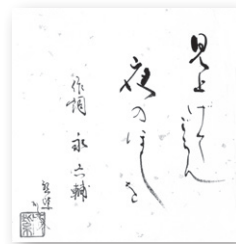 見上げてごらん
夜のほしを
作詞 永六輔